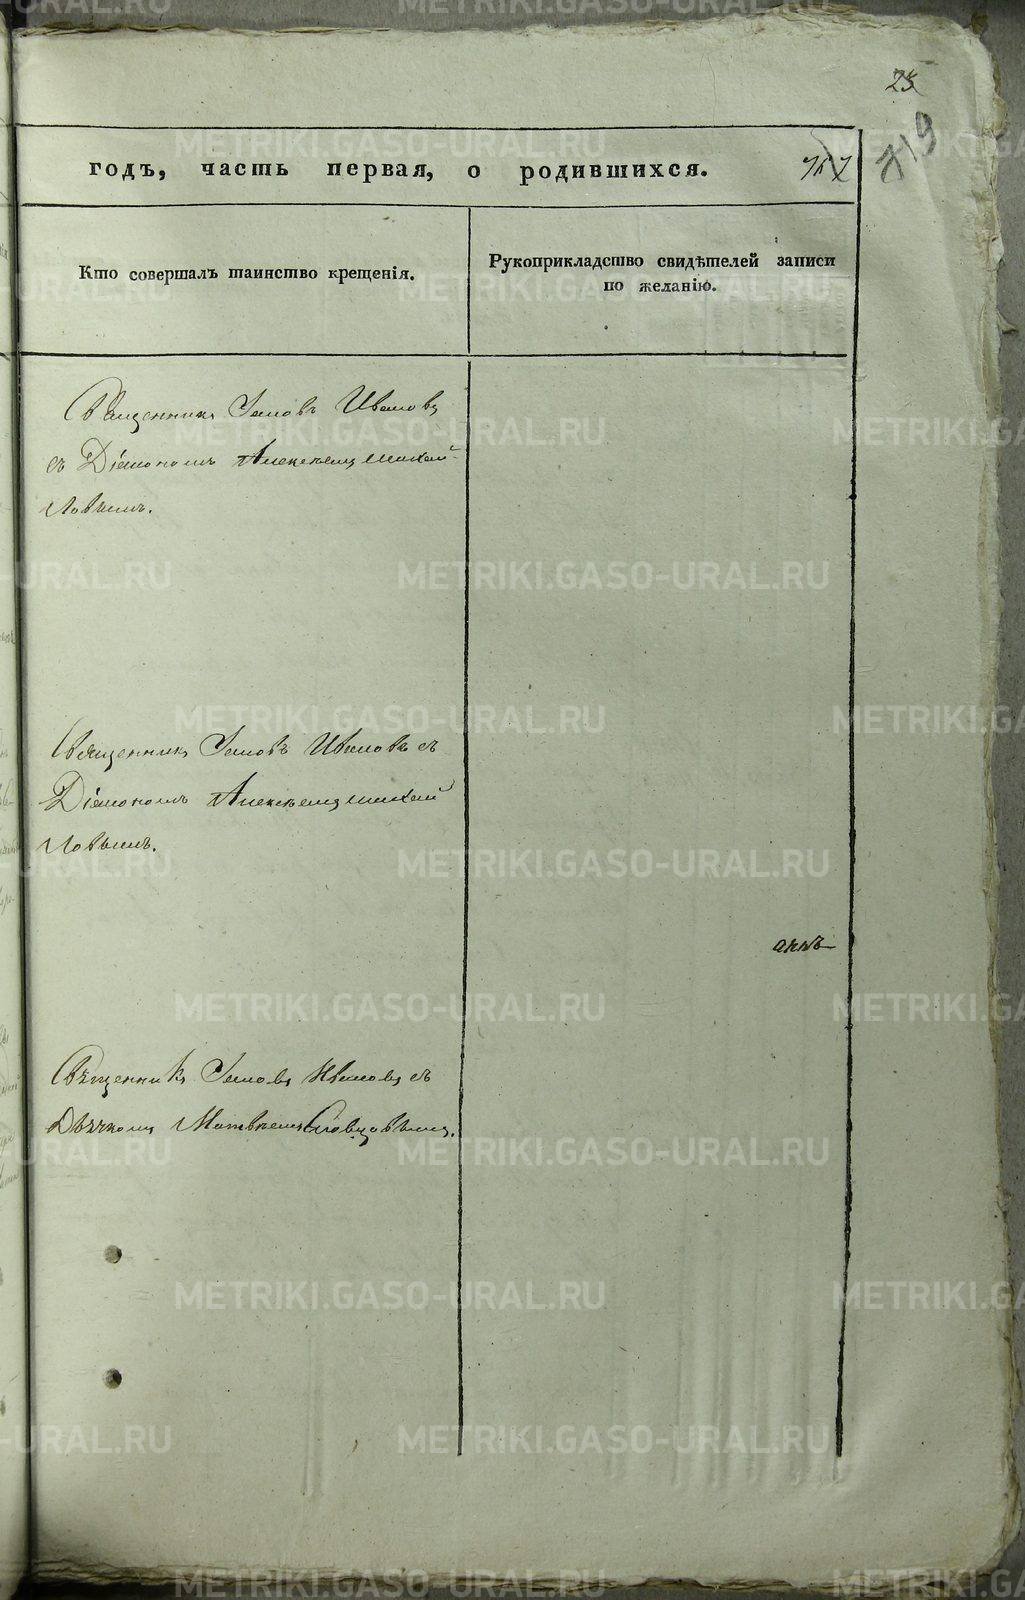 25
годъ, часть первая, о родившихся.
719
Кто совершалъ таинство крещенія.
Рукоприкладство свидѣтелей записи
по желанію.
Священникъ Іаковъ Ивановъ
съ Діакономъ Алексѣемъ Михай-
ловымъ.
Священникъ Іаковъ Ивановъ съ
Діакономъ Алексѣемъ Михай
ловымъ.
Священникъ Іаковъ Ивановъ съ
Дьячкомъ Матвѣемъ Словцовымъ.
METRIKI.GASO-URAL.RU